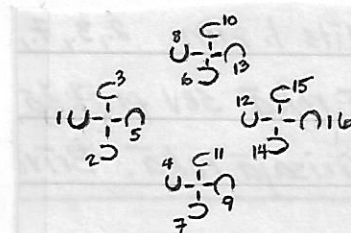 10
8
6 13
3
1 5
2
15
12 16
14
11
4
9
7